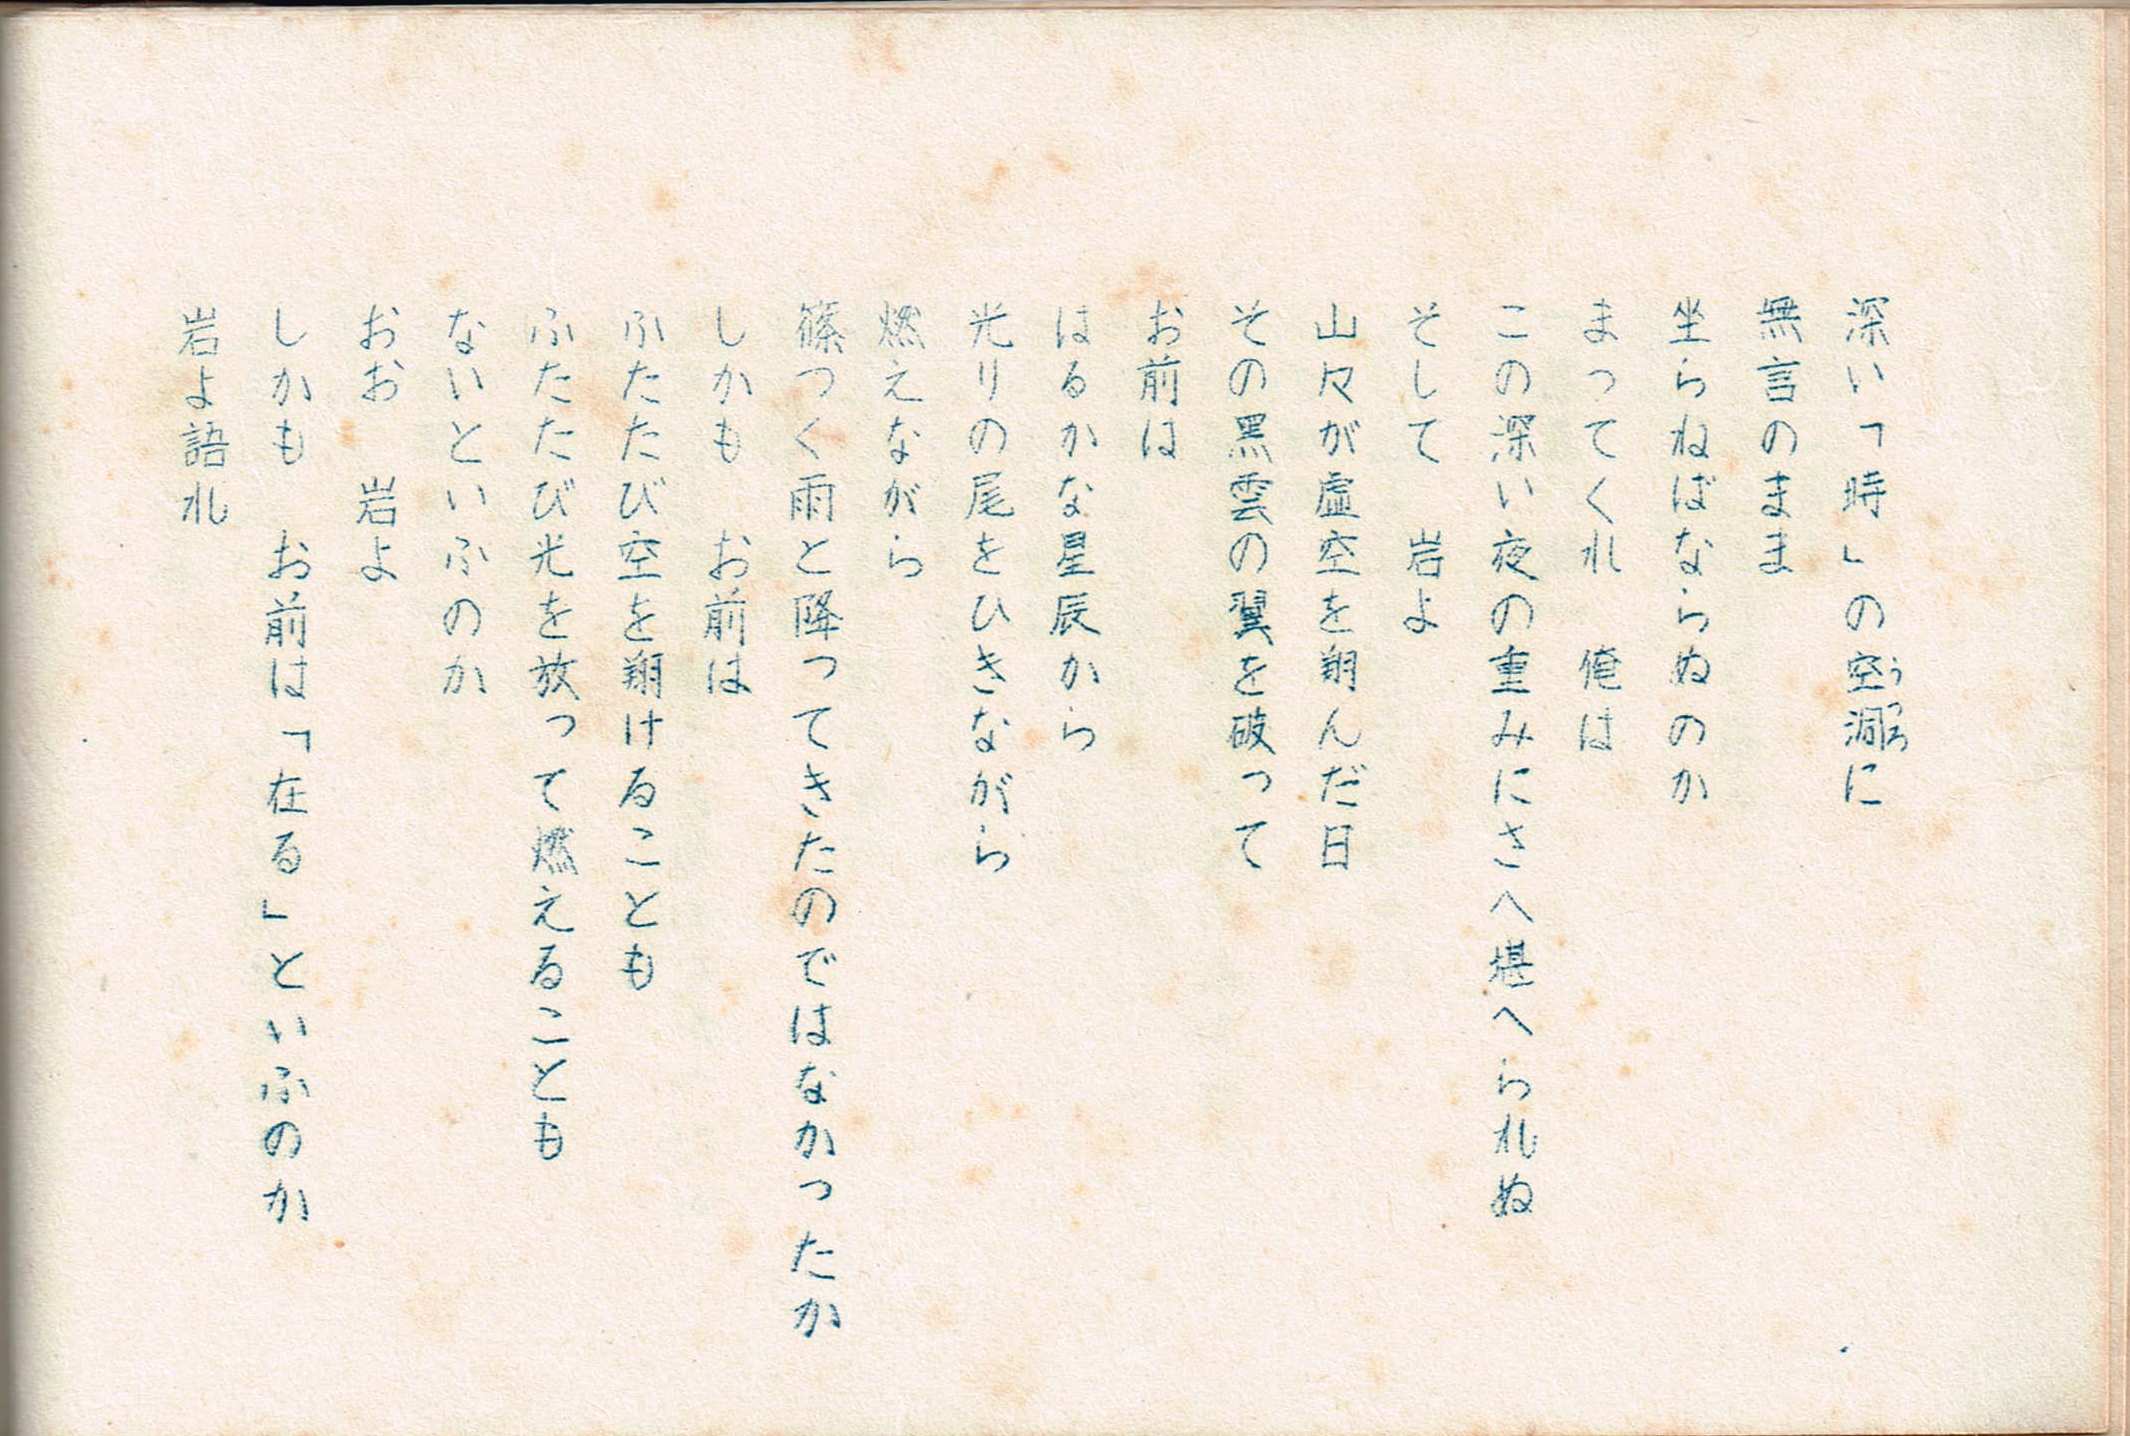 深い「時」の空洞に
うつろ
無言のまま
坐らねばならぬのか
まってくれ　俺は
この深い夜の重みにさへ堪へられぬ
そして　岩よ
山々が虚空を翔んだ日
その黒雲の翼を破って
お前は
はるかな星辰から
光りの尾をひきながら
燃えながら
篠つく雨と降ってきたのではなかったか
しかも　お前は
ふたたび空を翔けることも
ふたたび光を放って燃えることも
ないといふのか
おお　岩よ
しかも　お前は「在る」といふのか
岩よ語れ